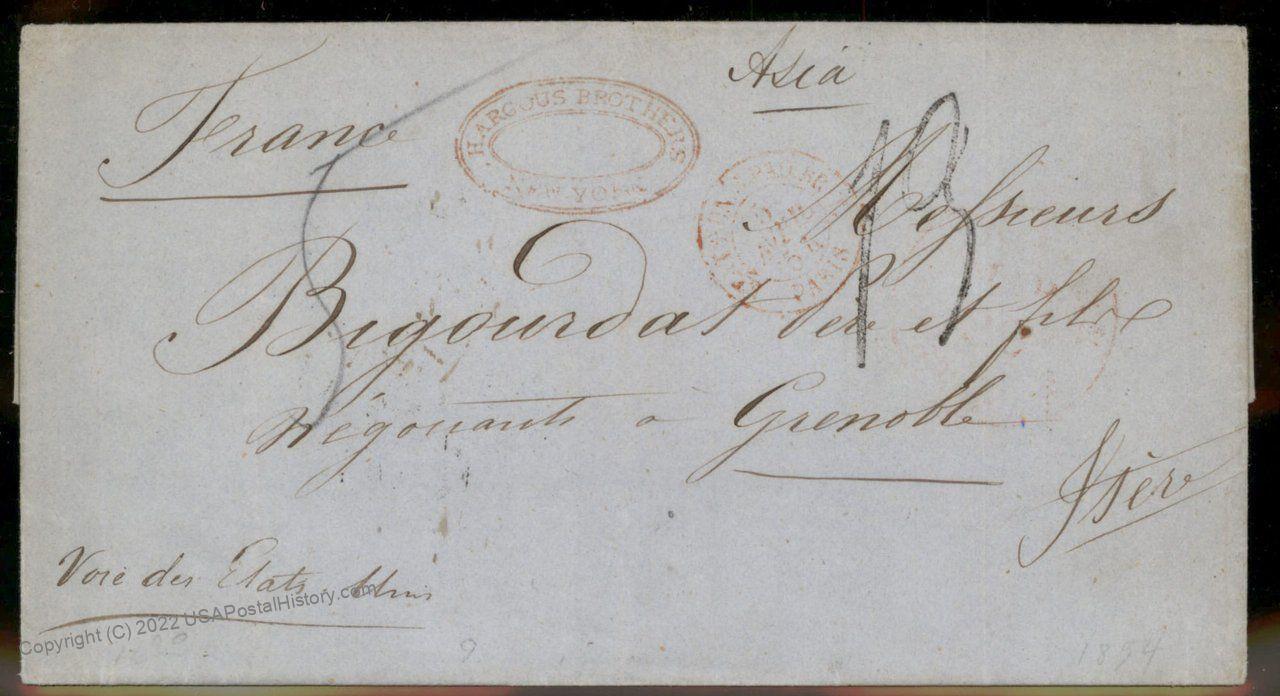 Asia
France
HARGOUS BROTHERS
NEW YORK
PARIS
13
Messieurs
Bigourdat Père et fils
Négociants à Grenoble
Isère
Voie des Etats Unis
Copyright (C) 2022 USAPostalHistory.com
9
1854